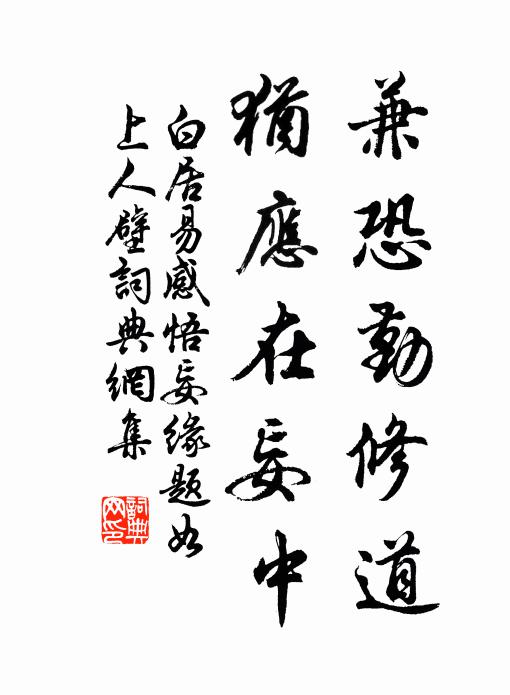 兼恐勤修道
猶應在妄中
白居易感悟妄緣題如
上人壁詞典網集
詞典
网印